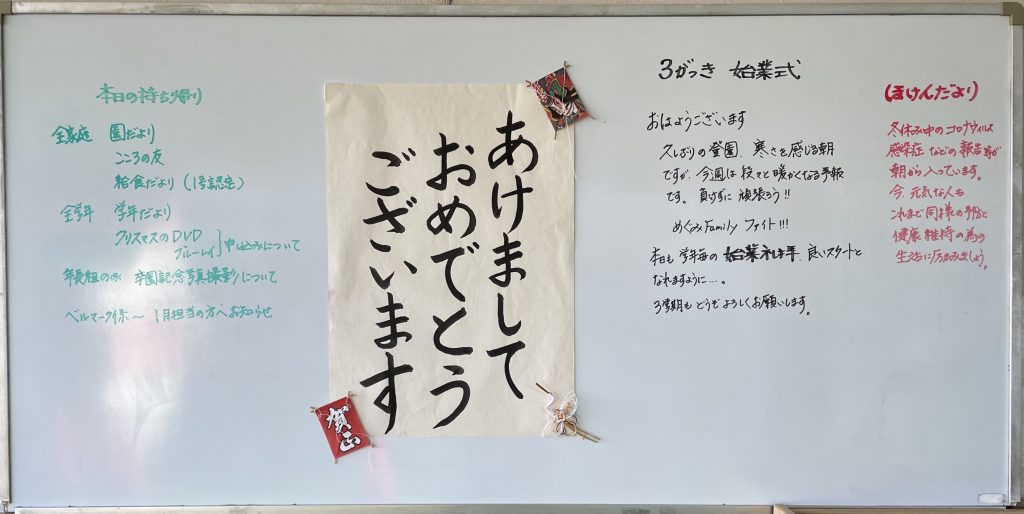 本日の持ち帰り
全家庭 園だより
こころの友
給食だより(1号認定)
全学年 学年だより
クリスマスのDVD
ブルーレイ}申し込みについて
年長組のみ 卒園記念写真撮影について
ベルマーク係〜 1月担当の方へお知らせ
あけまして
おめでとう
ございます
賀正
3がっき 始業式
おはようございます
久しぶりの登園、寒さを感じる朝
ですが、今週は段々と暖かくなる予報
です。負けずに頑張ろう!!
めぐみFamily ファイト!!!
本日も学年毎の始業礼拝、良いスタートと
なれますように…。
3学期もどうぞよろしくお願いします。
(ほけんだより)
冬休み中のコロナウィルス
感染症などの報告等が
朝から入っています。
今、元気な人も
これまで同様の予防と
健康維持の為の
生活に励みましょう。